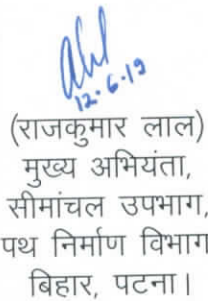 12.6.19
(राजकुमार लाल)
मुख्य अभियंता,
सीमांचल उपभाग,
पथ निर्माण विभाग
बिहार, पटना।